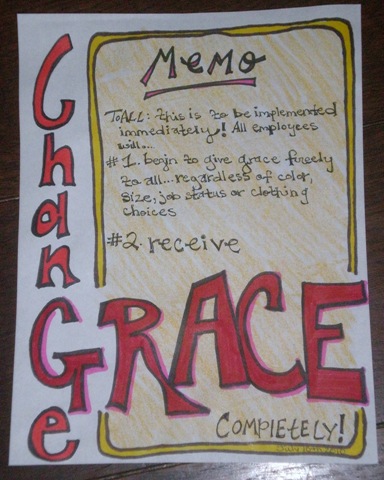 Change
Memo
To ALL: this is to be implemented
immediately! All employees
will...
#1. begin to give grace freely
to all... regardless of color,
size, job status or clothing
choices
#2. receive
GRACE
COMPLETELY!